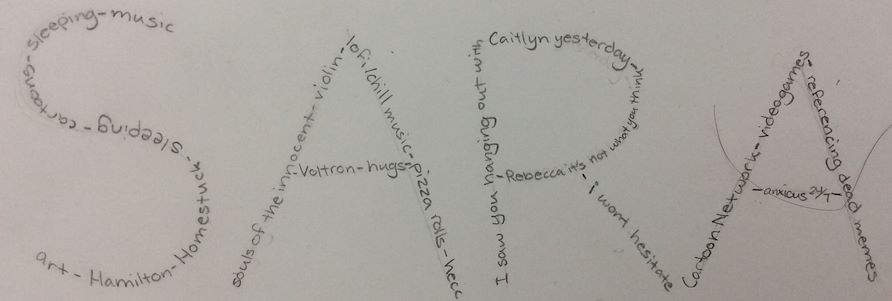 sleeping-music
-cartoons-
sleeping-
-sleeping-
Homestuck-
art-Hamilton-
souls of the innocent-violin-
lofi/chill music-pizza rolls-hecc
-Voltron-hugs-
I saw you hanging out with
Caitlyn yesterday-
-Rebecca it's not what you think
-i wont hesitate
Cartoon Network-videogames-
referencing dead memes
-anxious 24/7-